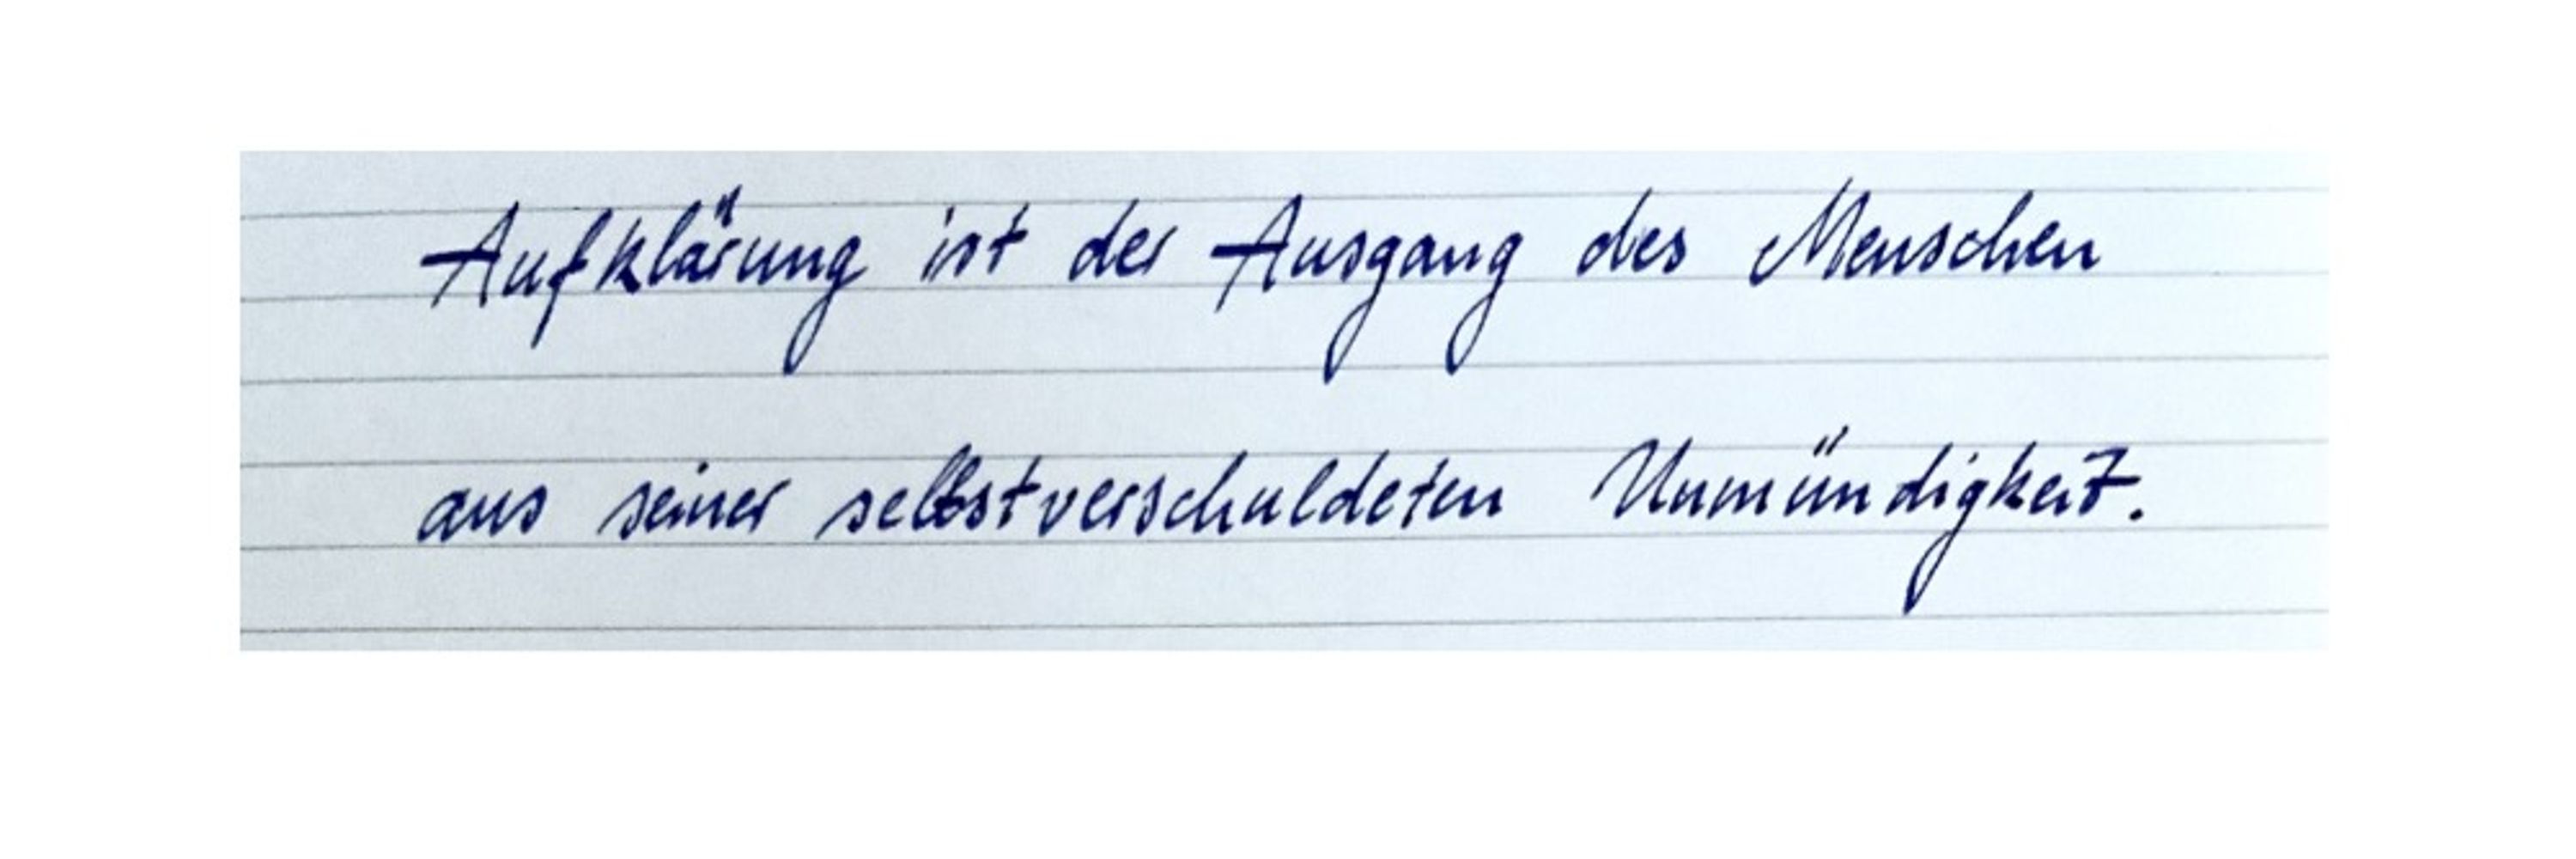 Aufklärung ist der Ausgang des Menschen
aus seiner selbstverschuldeten Unmündigkeit.